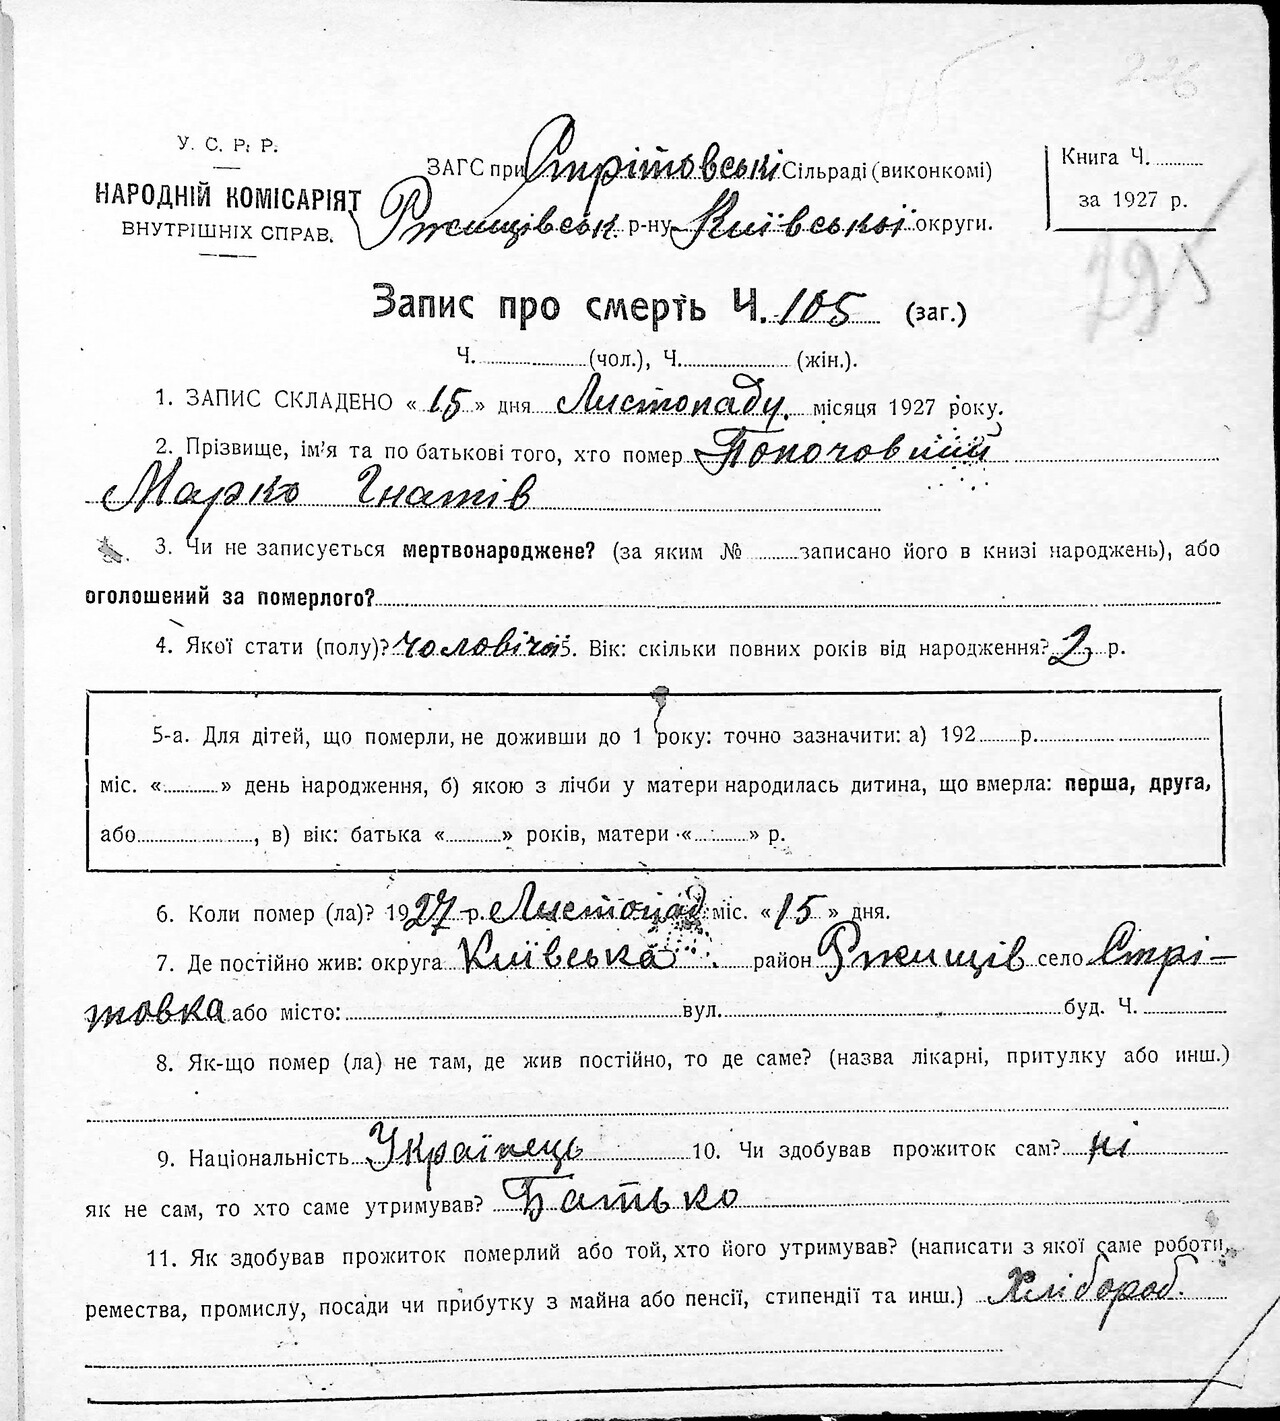 226
У. С. Р. Р.
НАРОДНІЙ КОМІСАРІЯТ
ВНУТРІШНІХ СПРАВ.
ЗАГС при Стрітовські Сільраді (виконкомі)
Ржищівськ. р-ну Київської округи.
Книга Ч. ........
за 1927 р.
795
Запис про смерть Ч. 105 (заг.)
Ч. ........ (чол.), Ч. ........ (жін.).
1. ЗАПИС СКЛАДЕНО « 15 » дня Листопаду. місяця 1927 року.
2. Прізвище, ім'я та по батькові того, хто помер Топочовий
Марко Гнатів
3. Чи не записується мертвонароджене? (за яким № ........ записано його в книзі народжень), або
оголошений за померлого?
4. Якої стати (полу)? чоловічої 5. Вік: скільки повних років від народження? 2 р.
5-а. Для дітей, що померли, не доживши до 1 року: точно зазначити: а) 192 ........ р. ........
міс. « ........ » день народження, б) якою з лічби у матери народилась дитина, що вмерла: перша, друга,
або ........, в) вік: батька « ........ » років, матери « ........ » р.
6. Коли помер (ла)? 1927 р. Листопад міс. « 15 » дня.
7. Де постійно жив: округа Київська район Ржищів село Стрі-
товка або місто: ........ вул. ........ буд. Ч. ........
8. Як-що помер (ла) не там, де жив постійно, то де саме? (назва лікарні, притулку або инш.)
9. Національність Українець 10. Чи здобував прожиток сам? ні
як не сам, то хто саме утримував? Батько
11. Як здобував прожиток померлий або той, хто його утримував? (написати з якої саме роботи,
ремества, промислу, посади чи прибутку з майна або пенсії, стипендії та инш.) Хлібороб.